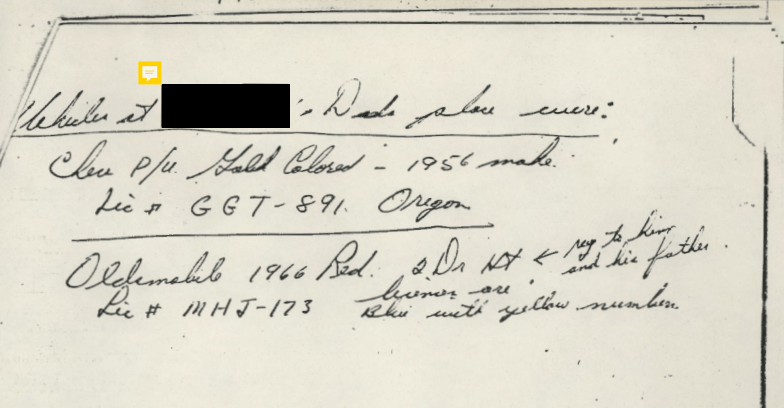 Vehicles at 's Dads place were:
Chev P/U. Gold Colored - 1956 make.
Lic # GGT-891. Oregon
Oldsmobile 1966 Red. 2 Dr HT ← reg to him
and his father.
licenses are
Lic # MHJ-173 Blue with yellow numbers.